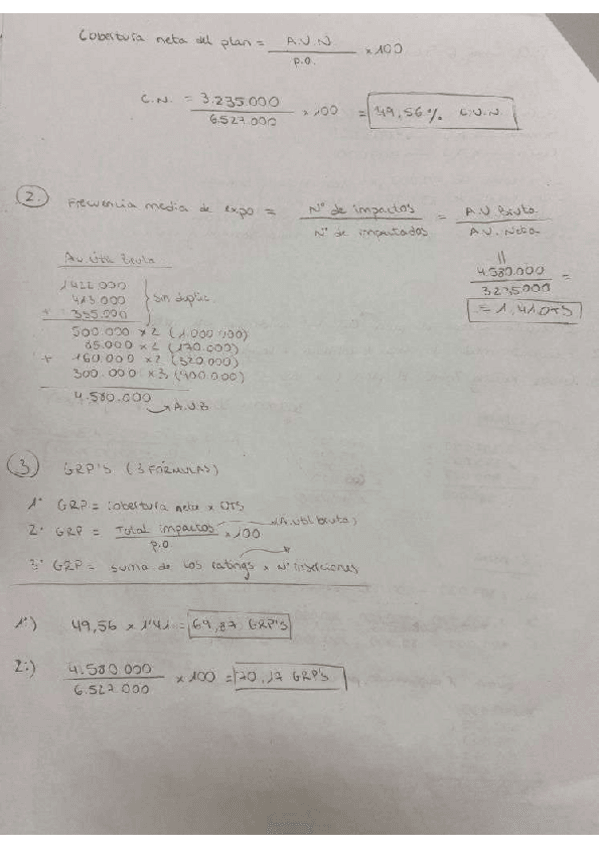 Cobertura neta del plan = A.U.N / P.O. x 100
C.N. = 3.235.000 / 6.527.000 x 100 = 49,56% C.U.N.
2. Frecuencia media de expo = Nº de impactos / Nº de impactados = A.U Bruta / A.U. Neta
Au. útil Bruta
4.580.000 / 3235000 =
= 1,41 OTS
1422.000
413.000
+ 355.000
sin duplic
500.000 x 2 (1.000.000)
65.000 x 2 (170.000)
+ 160.000 x 2 (320.000)
300.000 x 3 (900.000)
4.580.000
A.U.B
3 GRP'S (3 FÓRMULAS)
1º GRP = Cobertura neta x OTS
2º GRP = Total impactos / P.O x 100 (A.util bruta)
3º GRP = suma de los ratings x Nº inserciones
1º) 49,56 x 1'41 = 69,87 GRP'S
2º) 4.580.000 / 6.527.000 x 100 = 70,17 GRP'S